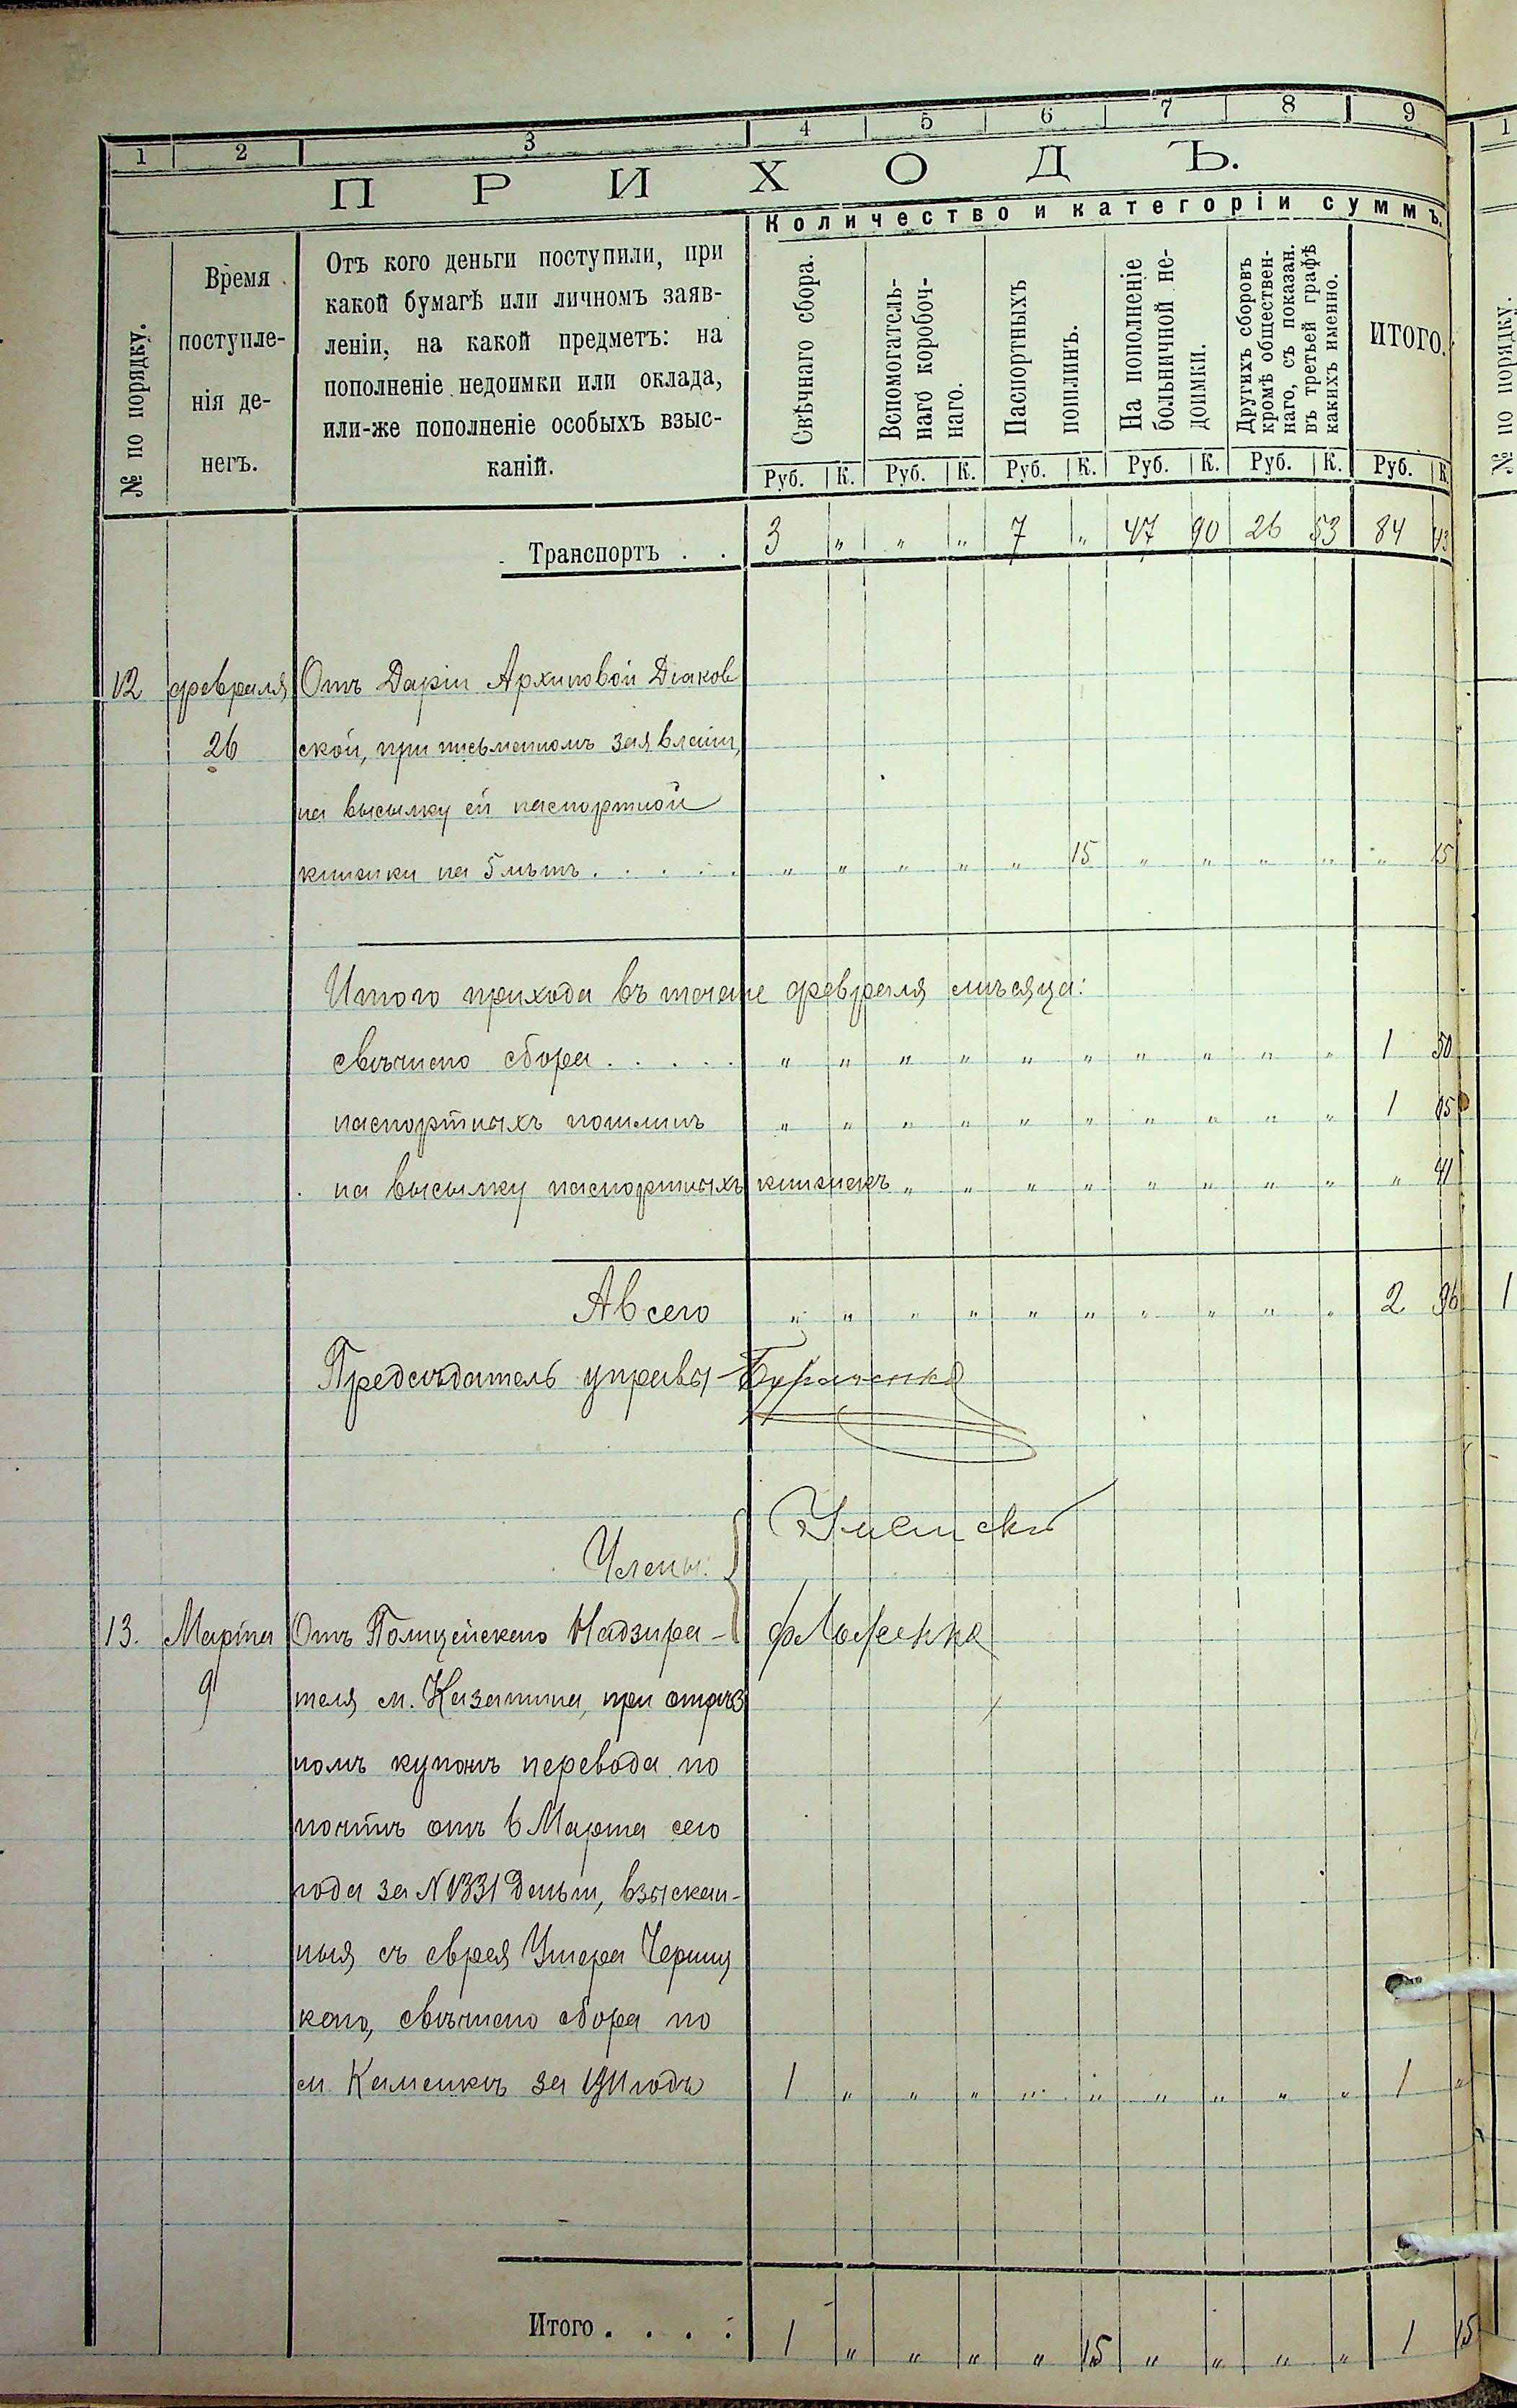 1 2 3 4 5 6 7 8 9
ПРИХОДЪ.
Количество и категоріи суммъ.
№ по порядку.
Время поступле-
нія де-
негъ.
Отъ кого деньги поступили, при
какой бумагѣ или личномъ заяв-
леніи, на какой предметъ: на
пополненіе недоимки или оклада,
или-же пополненіе особыхъ взыс-
каній.
Свѣчнаго сбора.
Вспомогатель-
наго коробоч-
наго.
Паспортныхъ
пошлинъ.
На пополненіе
больничной не-
доимки.
Другихъ сборовъ
кромѣ обществен-
наго, съ показан.
въ третьей графѣ
какихъ именно.
ИТОГО.
Руб. К. Руб. К. Руб. К. Руб. К. Руб. К. Руб. К.
Транспортъ . . 3 " " " 7 " 47 90 26 53 84 43
12 февраля Отъ Даріи Архиповой Діаков
26 ской, при письменномъ заявленіи,
на высылку ей паспортной
книжки на 5 лѣтъ . . . . . " " " " " 15 " " " " " 15
Итого прихода въ теченіе февраля мѣсяца:
свѣчного сбора . . . . . " " " " " " " " " " 1 50
паспортныхъ пошлинъ " " " " " " " " " " 1 05
на высылку паспортныхъ книжекъ " " " " " " " " " 41
А всего " " " " " " " " " " 2 96
Предсѣдатель управы
Члены:
13. Марта Отъ Полицейскаго Надзира-
9 теля м. Казатина, при отрѣз
номъ купонѣ перевода по
почтѣ отъ 6 Марта сего
года за N 1331 деньги, взыскан-
ныя съ еврея Умера
каго, свѣчного сбора по
м. Каменкѣ за 1911 годъ 1 " " " " " " " " " 1 "
Итого . . . . 1 " " " " 15 " " " " 1 15
1
№ по порядку.
1